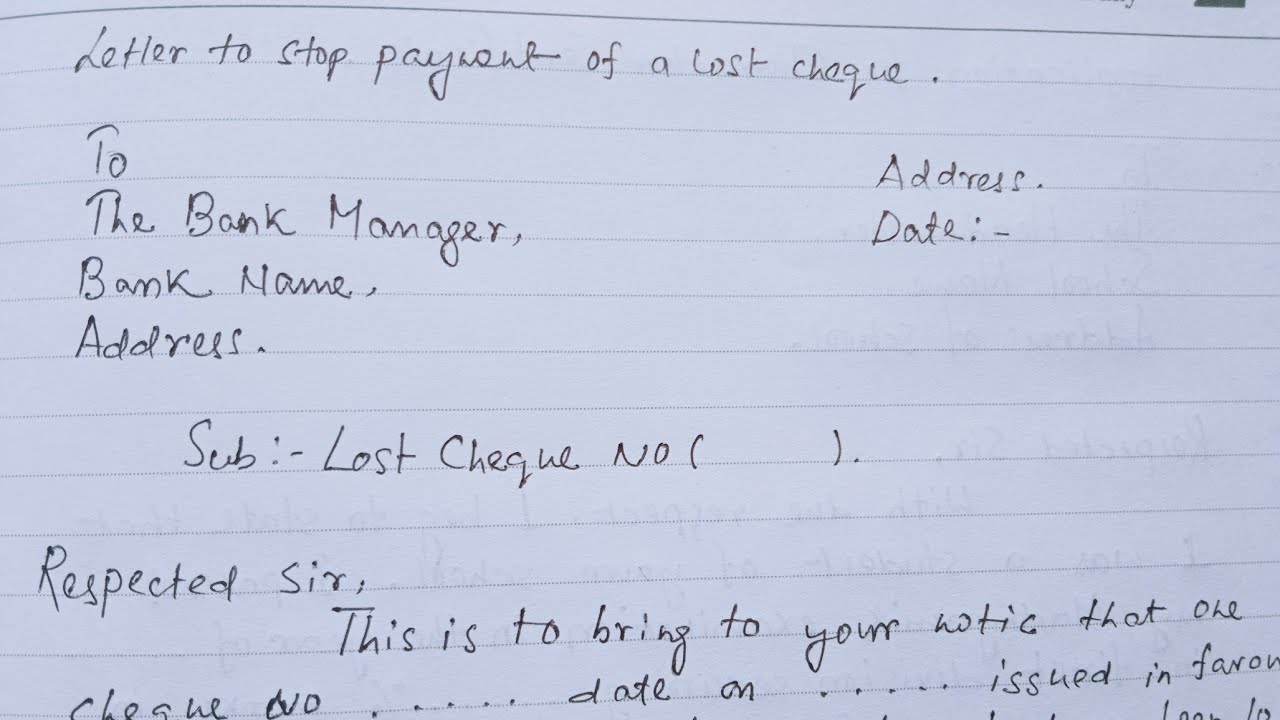 Letter to stop payment of a lost cheque.
To
The Bank Manager,
Bank Name,
Address.
Address.
Date:-
Sub:- Lost Cheque NO (          ).
Respected Sir,
This is to bring to your notic that one
cheque NO . . . . . date on . . . . . issued in favou